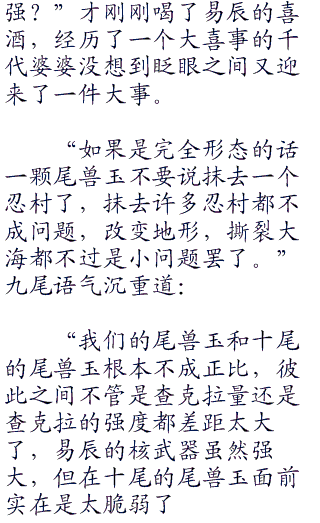 强？”才刚刚喝了易辰的喜
酒，经历了一个大喜事的千
代婆婆没想到眨眼之间又迎
来了一件大事。
“如果是完全形态的话
一颗尾兽玉不要说抹去一个
忍村了，抹去许多忍村都不
成问题，改变地形，撕裂大
海都不过是小问题罢了。”
九尾语气沉重道：
“我们的尾兽玉和十尾
的尾兽玉根本不成正比，彼
此之间不管是查克拉量还是
查克拉的强度都差距太大
了，易辰的核武器虽然强
大，但在十尾的尾兽玉面前
实在是太脆弱了